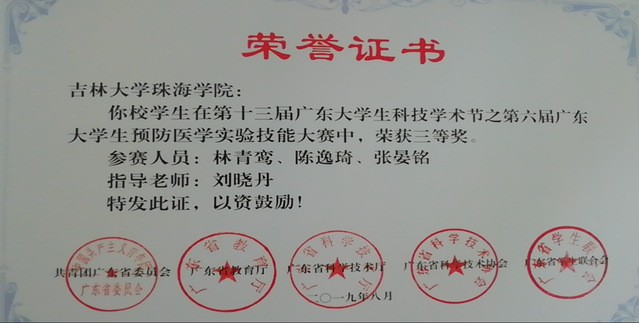 荣誉证书
吉林大学珠海学院：
你校学生在第十三届广东大学生科技学术节之第六届广东
大学生预防医学实验技能大赛中，荣获三等奖。
参赛人员：林青鸾、陈逸琦、张晏铭
指导老师：刘晓丹
特发此证，以资鼓励！
共青团广东省委员会 广东省教育厅 广东省科学技术厅 广东省科学技术协会 广东省学生联合会
广东省委员会
二〇一九年八月